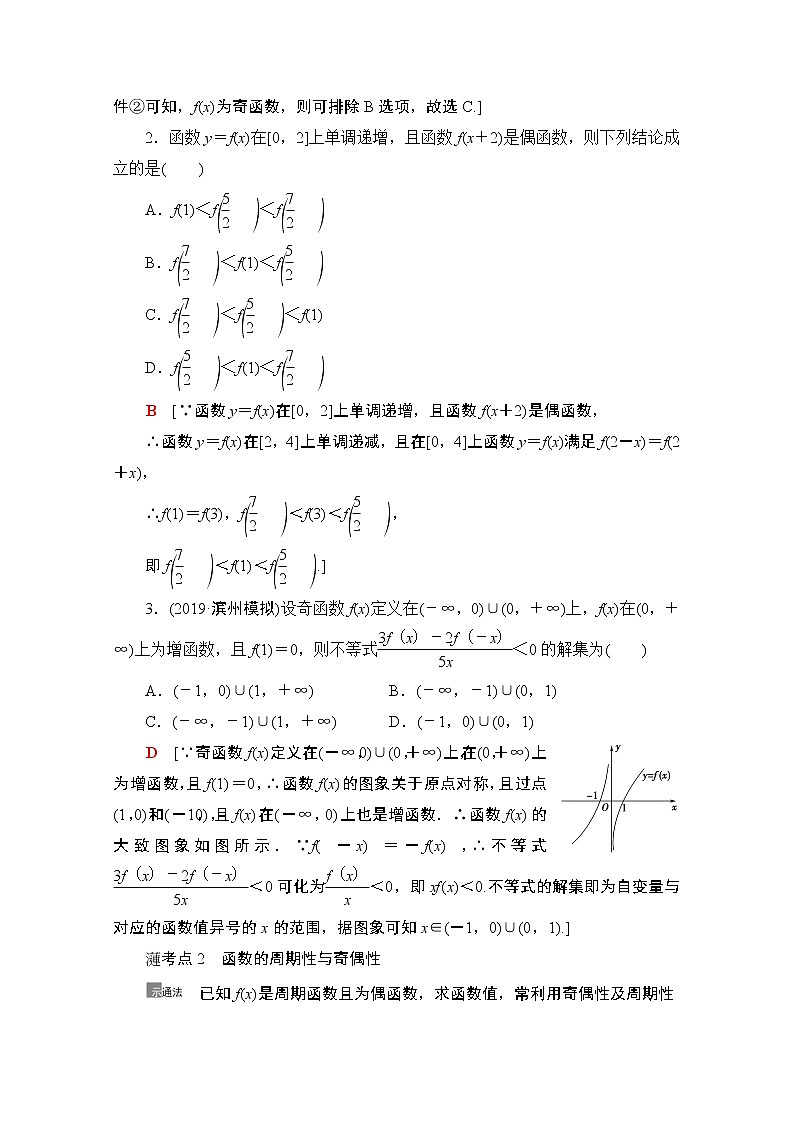 件②可知，f(x)为奇函数，则可排除 B 选项，故选 C.]
2．函数 y＝f(x)在[0，2]上单调递增，且函数 f(x＋2)是偶函数，则下列结论成
立的是(　　)
A．f(1)＜f(5/2)＜f(7/2)
B．f(7/2)＜f(1)＜f(5/2)
C．f(7/2)＜f(5/2)＜f(1)
D．f(5/2)＜f(1)＜f(7/2)
B　[∵函数 y＝f(x)在[0，2]上单调递增，且函数 f(x＋2)是偶函数，
∴函数 y＝f(x)在[2，4]上单调递减，且在[0，4]上函数 y＝f(x)满足 f(2－x)＝f(2
＋x)，
∴f(1)＝f(3)，f(7/2)＜f(3)＜f(5/2)，
即 f(7/2)＜f(1)＜f(5/2).]
3．(2019·滨州模拟)设奇函数 f(x)定义在(－∞，0)∪(0，＋∞)上，f(x)在(0，＋
∞)上为增函数，且 f(1)＝0，则不等式3f（x）－2f（－x）/5x＜0 的解集为(　　)
A．(－1，0)∪(1，＋∞)　　B．(－∞，－1)∪(0，1)
C．(－∞，－1)∪(1，＋∞)　　D．(－1，0)∪(0，1)
D　[∵奇函数 f(x)定义在(－∞，0)∪(0，＋∞)上，在(0，＋∞)上
为增函数，且 f(1)＝0，∴函数 f(x)的图象关于原点对称，且过点
(1，0)和(－1，0)，且 f(x)在(－∞，0)上也是增函数．∴函数 f(x)的
大致图象如图所示．∵f(－x)＝－f(x)，∴不等式
3f（x）－2f（－x）/5x＜0 可化为f（x）/x＜0，即 xf(x)＜0.不等式的解集即为自变量与
对应的函数值异号的 x 的范围，据图象可知 x∈(－1，0)∪(0，1).]
y
y=f(x)
－1 O 1 x
考点 2　函数的周期性与奇偶性
示通法　已知 f(x)是周期函数且为偶函数，求函数值，常利用奇偶性及周期性